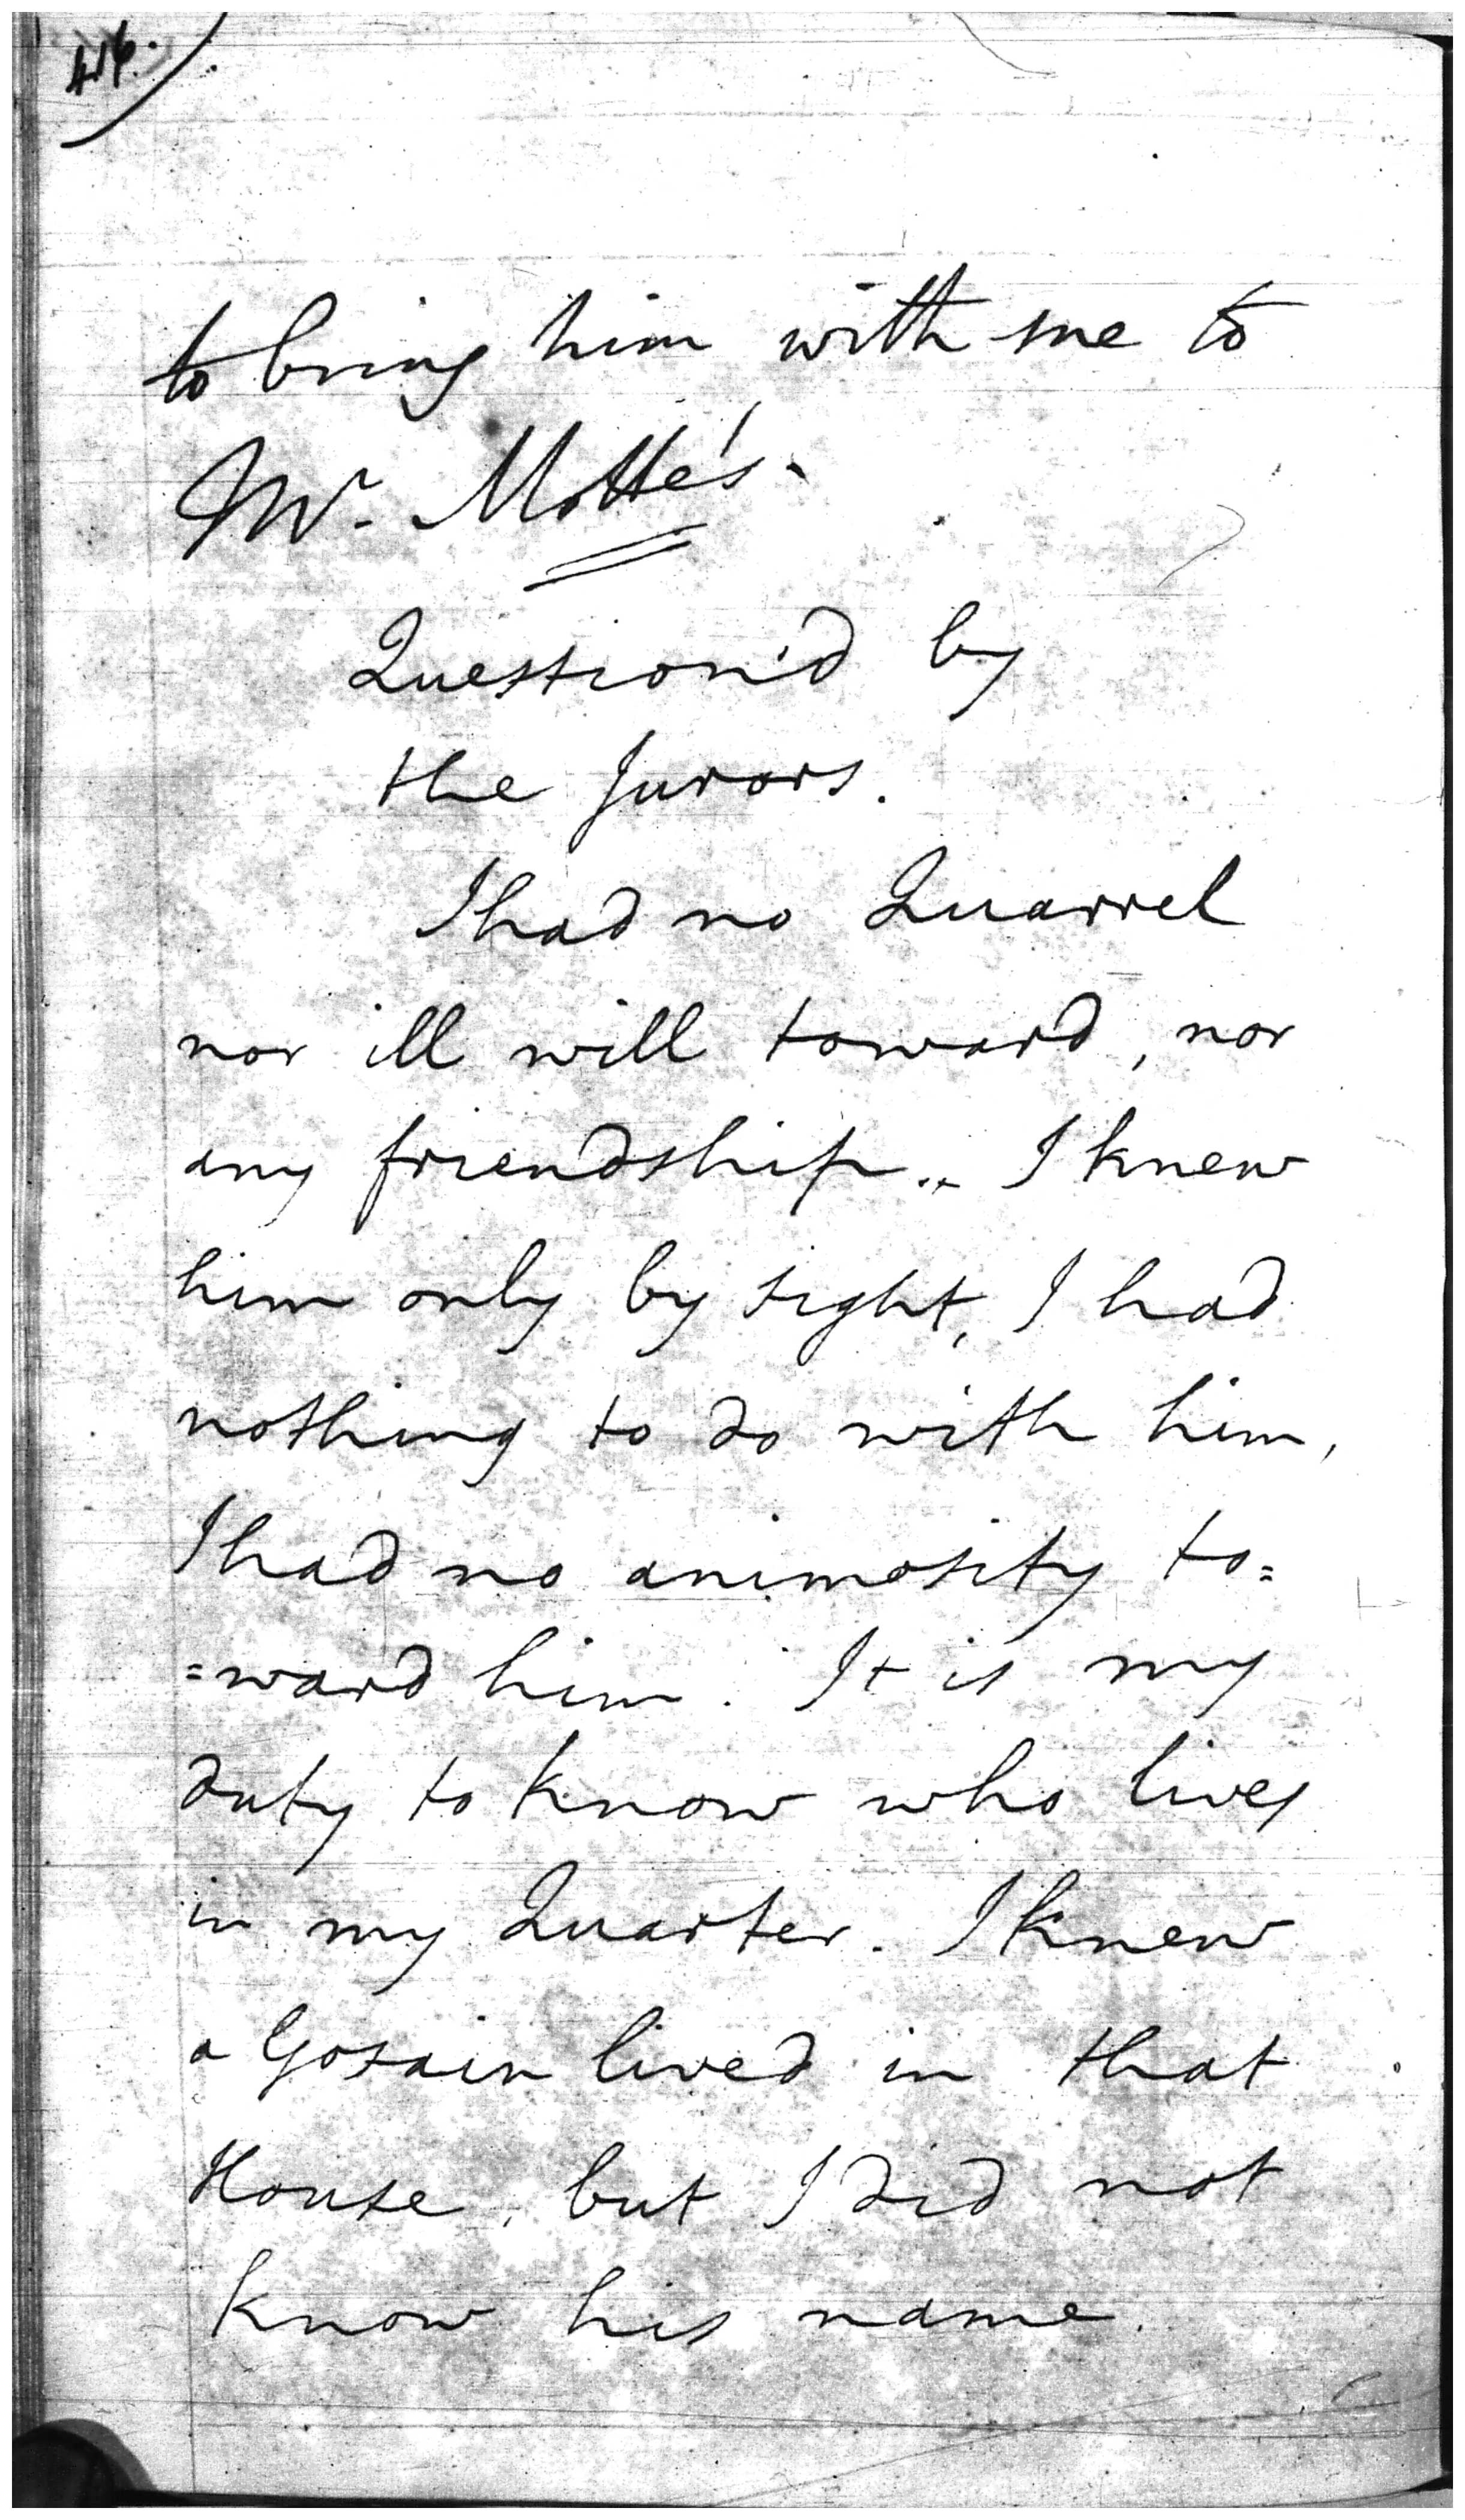 416.
to bring him with me to
Mr. Motte's.
Question'd by
the Jurors.
I had no Quarrel
nor ill will toward, nor
any friendship.. I knew
him only by sight, I had
nothing to do with him,
I had no animosity to=
=ward him. It is my
duty to know who lives
in my Quarter. I knew
a Gosain lived in that
House, but I did not
know his name.